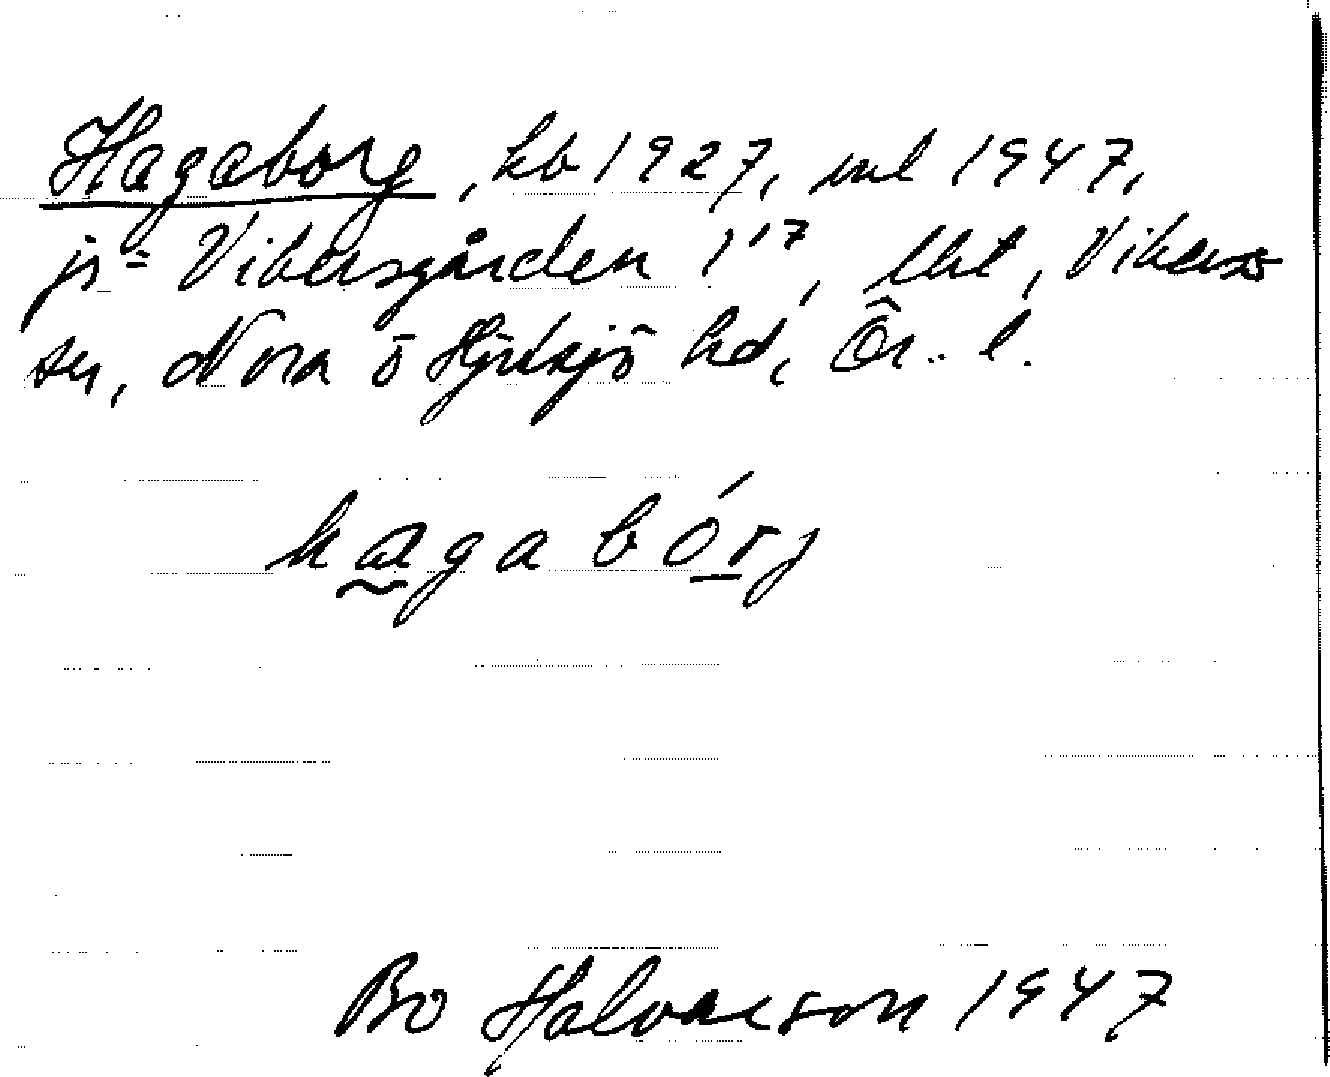 Hagaborg, kb 1927, uul 1947,
js= Vikersgården 1¹⁷, lht, Vikers
sn, Nora o Hjulsjö hd, Ör. l.
hagabórj
Bo Halvarson 1947